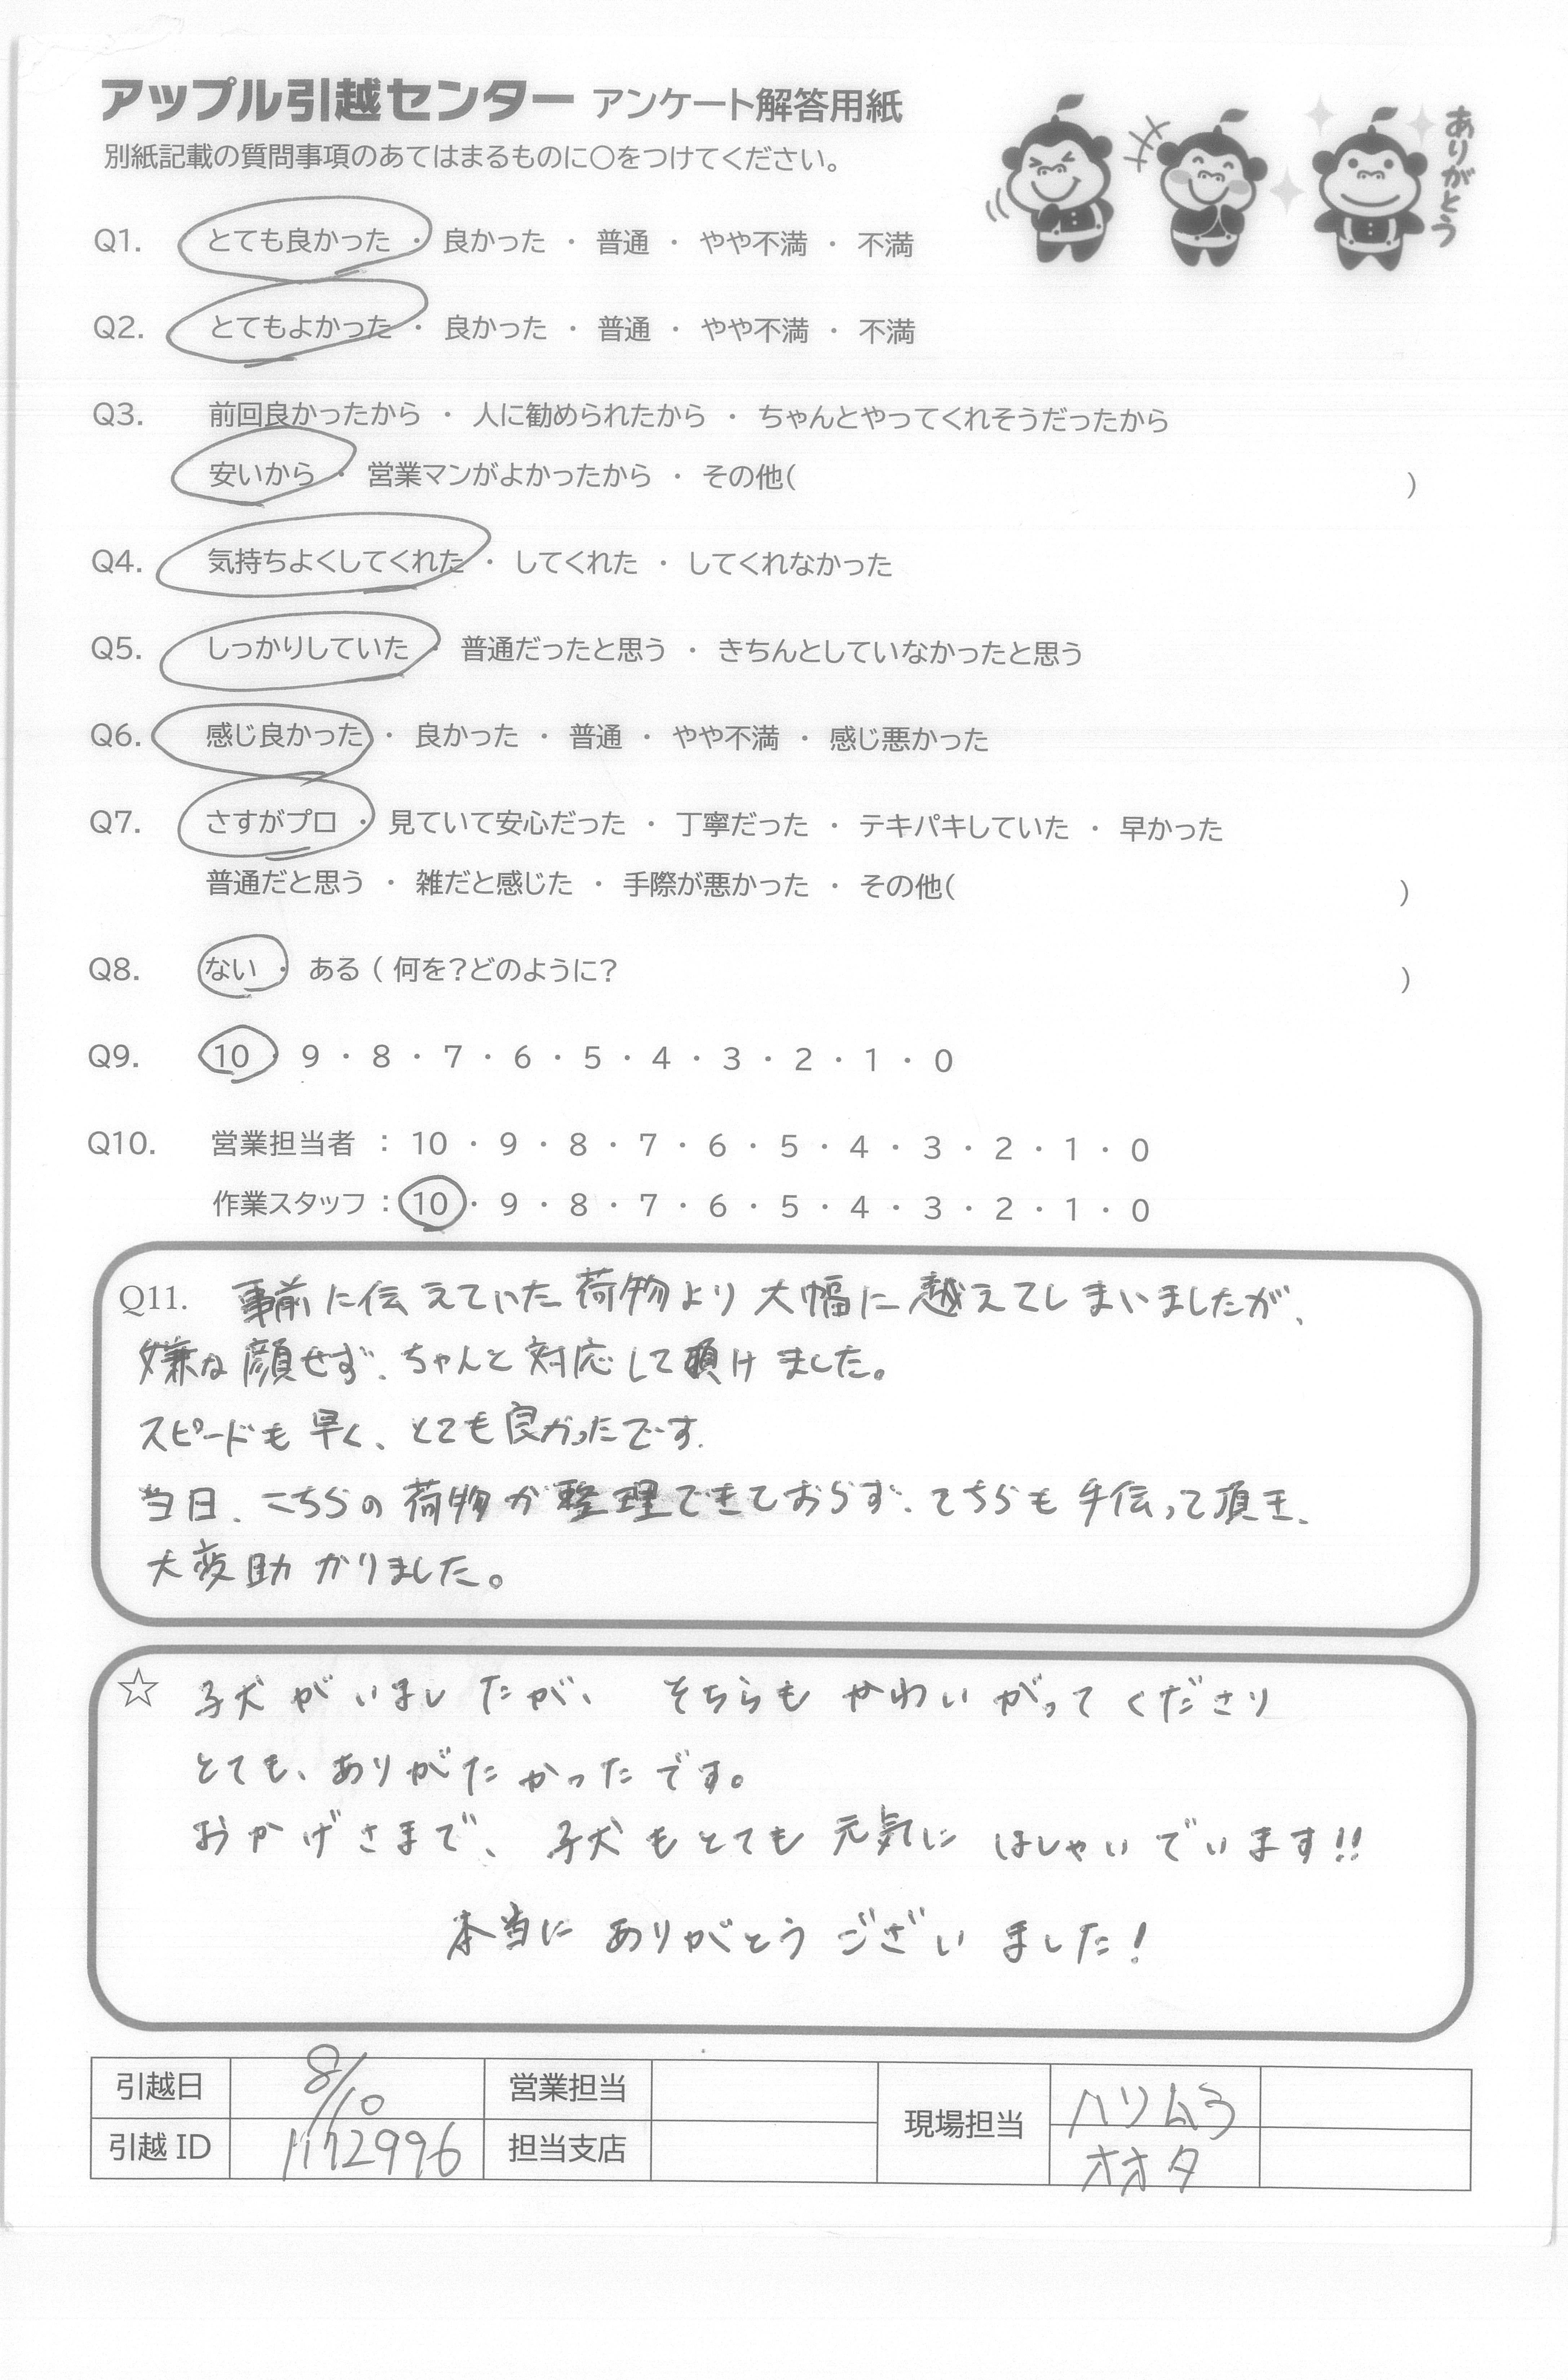 アップル引越センター アンケート解答用紙
別紙記載の質問事項のあてはまるものに○をつけてください。
ありがとう
Q1. とても良かった ・ 良かった ・ 普通 ・ やや不満 ・ 不満
Q2. とてもよかった ・ 良かった ・ 普通 ・ やや不満 ・ 不満
Q3. 前回良かったから ・ 人に勧められたから ・ ちゃんとやってくれそうだったから
安いから ・ 営業マンがよかったから ・ その他( )
Q4. 気持ちよくしてくれた ・ してくれた ・ してくれなかった
Q5. しっかりしていた ・ 普通だったと思う ・ きちんとしていなかったと思う
Q6. 感じ良かった ・ 良かった ・ 普通 ・ やや不満 ・ 感じ悪かった
Q7. さすがプロ ・ 見ていて安心だった ・ 丁寧だった ・ テキパキしていた ・ 早かった
普通だと思う ・ 雑だと感じた ・ 手際が悪かった ・ その他( )
Q8. ない ・ ある ( 何を?どのように? )
Q9. 10 ・ 9 ・ 8 ・ 7 ・ 6 ・ 5 ・ 4 ・ 3 ・ 2 ・ 1 ・ 0
Q10. 営業担当者 : 10 ・ 9 ・ 8 ・ 7 ・ 6 ・ 5 ・ 4 ・ 3 ・ 2 ・ 1 ・ 0
作業スタッフ : 10 ・ 9 ・ 8 ・ 7 ・ 6 ・ 5 ・ 4 ・ 3 ・ 2 ・ 1 ・ 0
Q11. 事前に伝えていた荷物より大幅に越えてしまいましたが、
嫌な顔せず、ちゃんと対応して頂けました。
スピードも早く、とても良かったです.
当日、こちらの荷物が整理できておらず、そちらも手伝って頂き、
大変助かりました。
☆ 子犬がいましたが、そちらもかわいがってくださり
とても、ありがたかったです。
おかげさまで、子犬もとても元気にはしゃいでいます!!
本当にありがとうございました!
引越日 8/10 営業担当 現場担当 ハリムラ
引越 ID 1172996 担当支店 オオタ